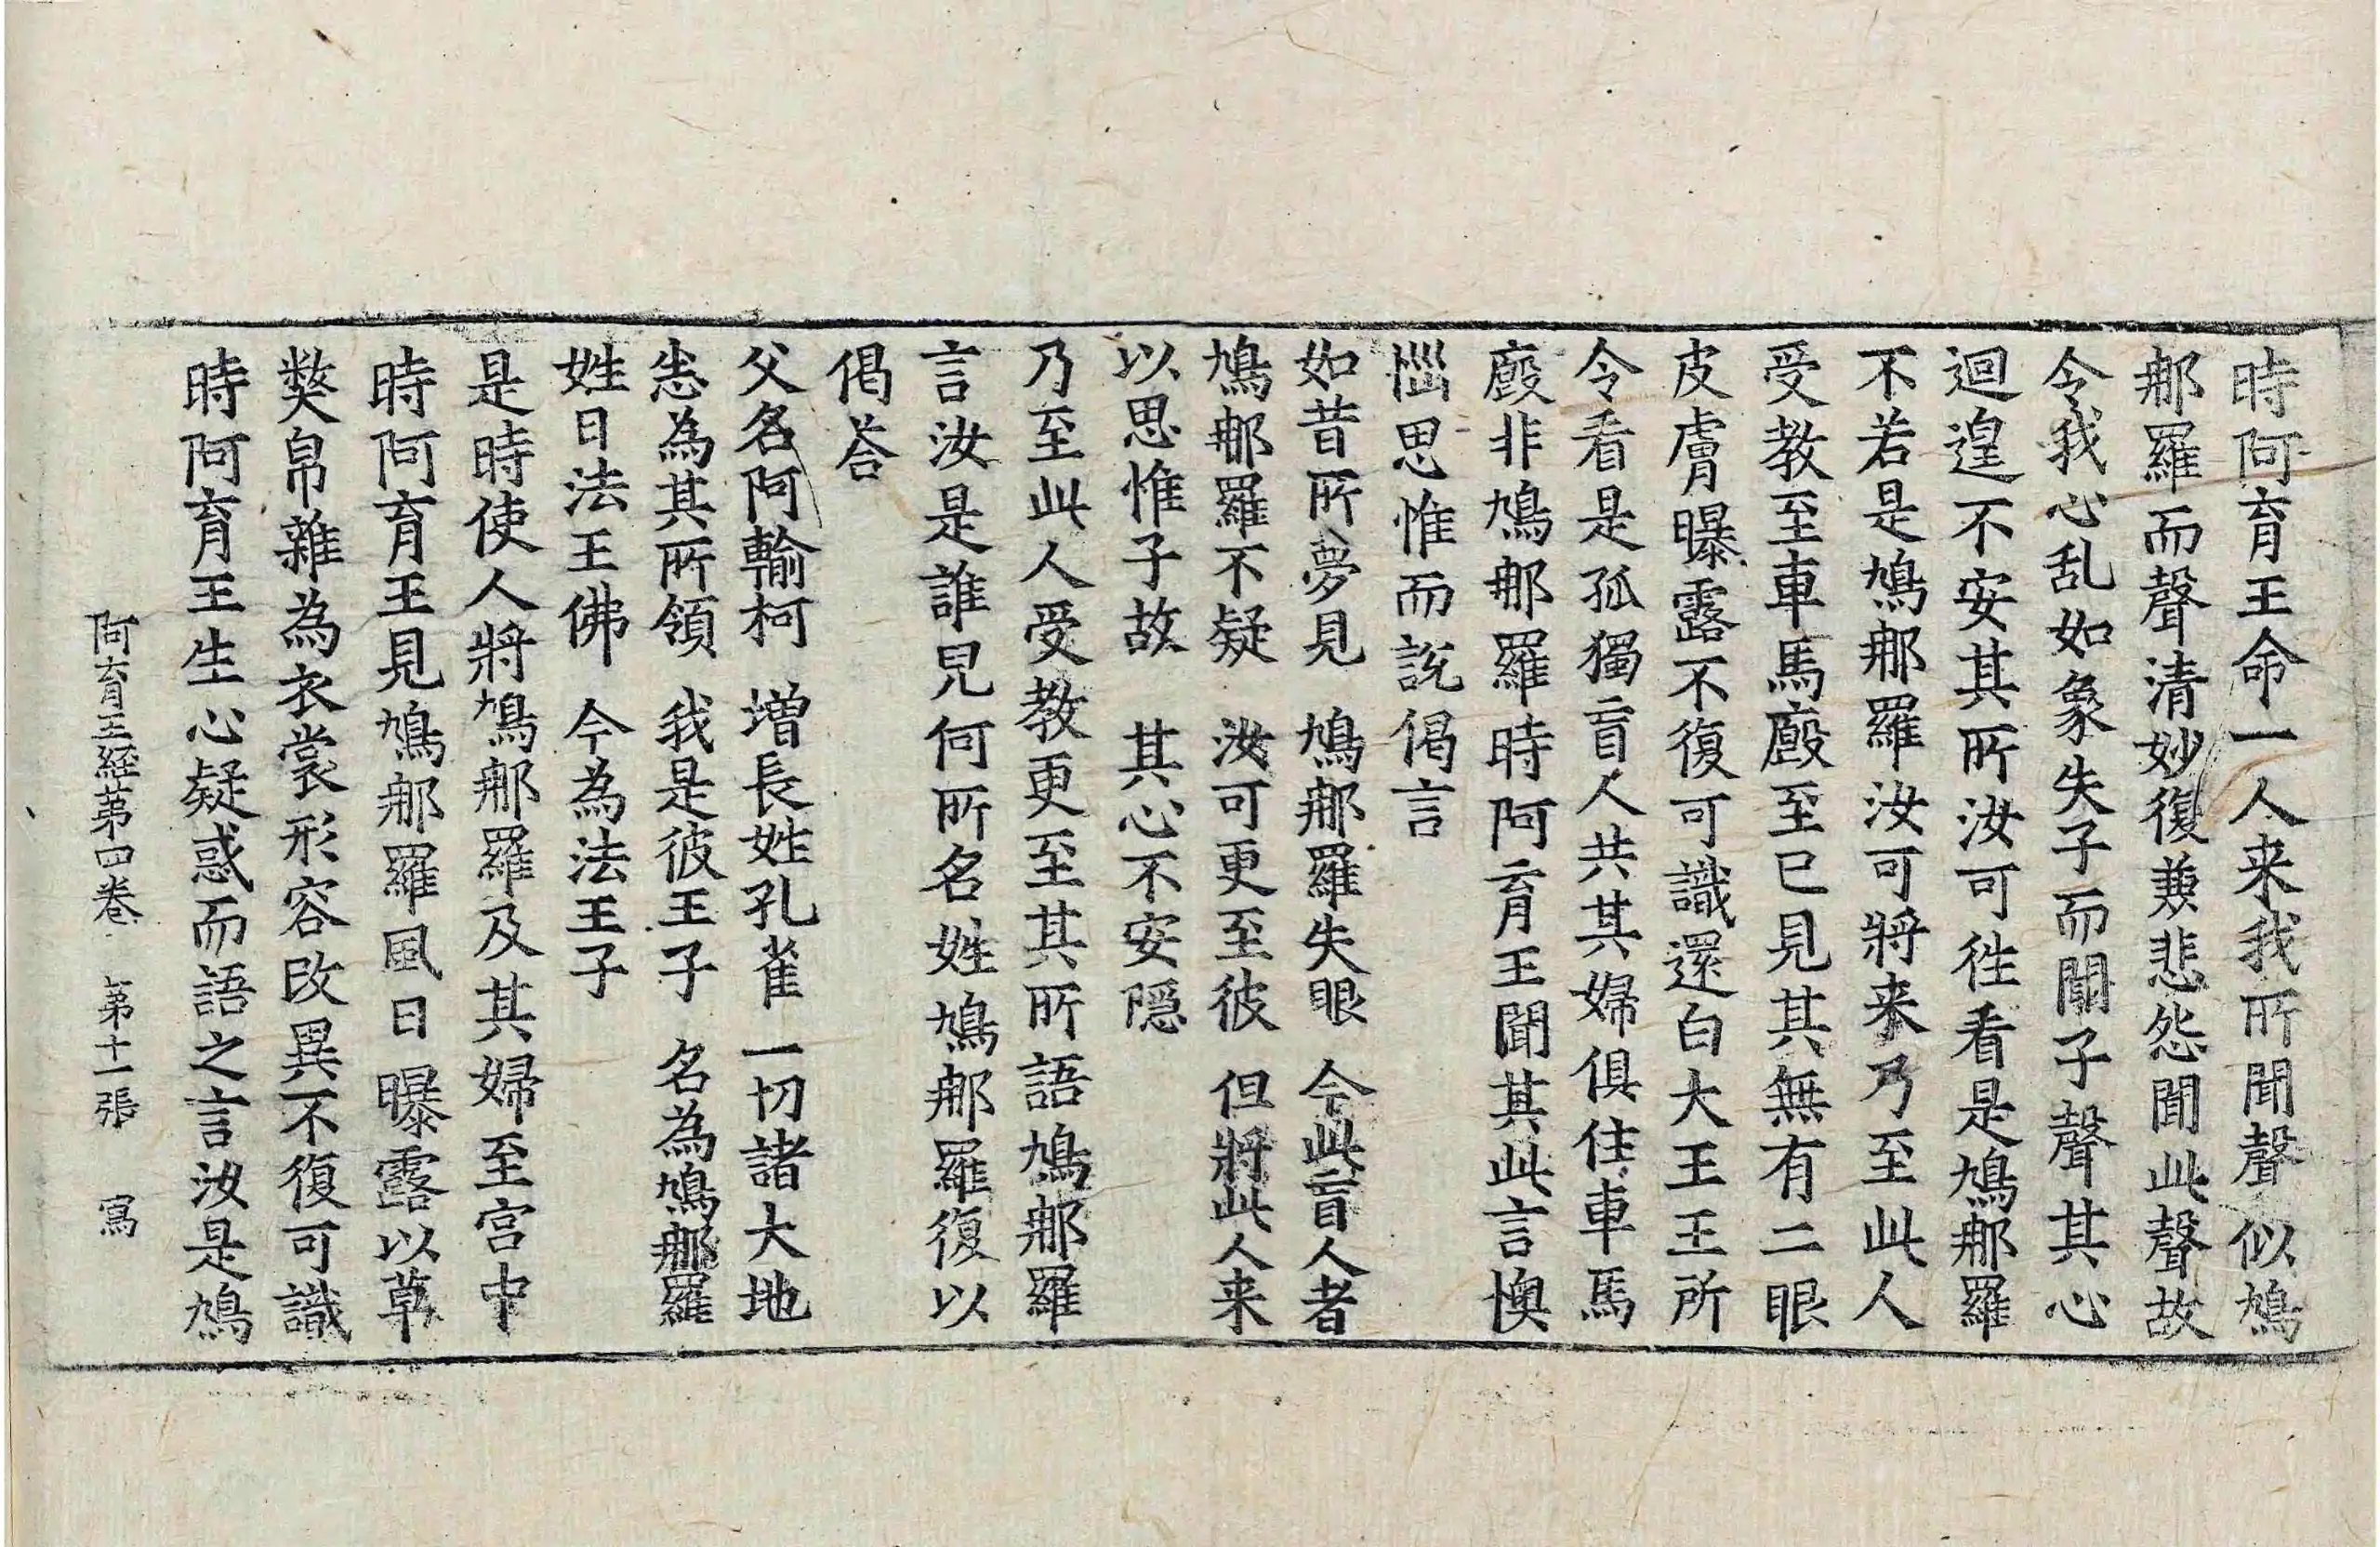 時阿育王命一人来我所聞聲似鳩
那羅而聲清妙復兼悲怨聞此聲故
令我心乱如象失子而聞子聲其心
迴遑不安其所汝可徃看是鳩那羅
不若是鳩那羅汝可將来乃至此人
受教至車馬廄至已見其無有二眼
皮膚曝露不復可識還白大王王所
令看是孤獨盲人共其婦俱住車馬
廄非鳩那羅時阿育王聞其此言懊
惱思惟而說偈言
如昔所夢見　鳩那羅失眼　今此盲人者
鳩那羅不疑　汝可更至彼　但將此人来
以思惟子故　其心不安隱
乃至此人受教更至其所語鳩那羅
言汝是誰兒何所名姓鳩那羅復以
偈荅
父名阿輸柯　增長姓孔雀　一切諸大地
悉為其所領　我是彼王子　名為鳩那羅
姓日法王佛　今為法王子
是時使人將鳩那羅及其婦至宮中
時阿育王見鳩那羅風日曝露以草
弊帛雜為衣裳形容改異不復可識
時阿育王生心疑惑而語之言汝是鳩
阿育王経苐四卷　苐十一張　寫